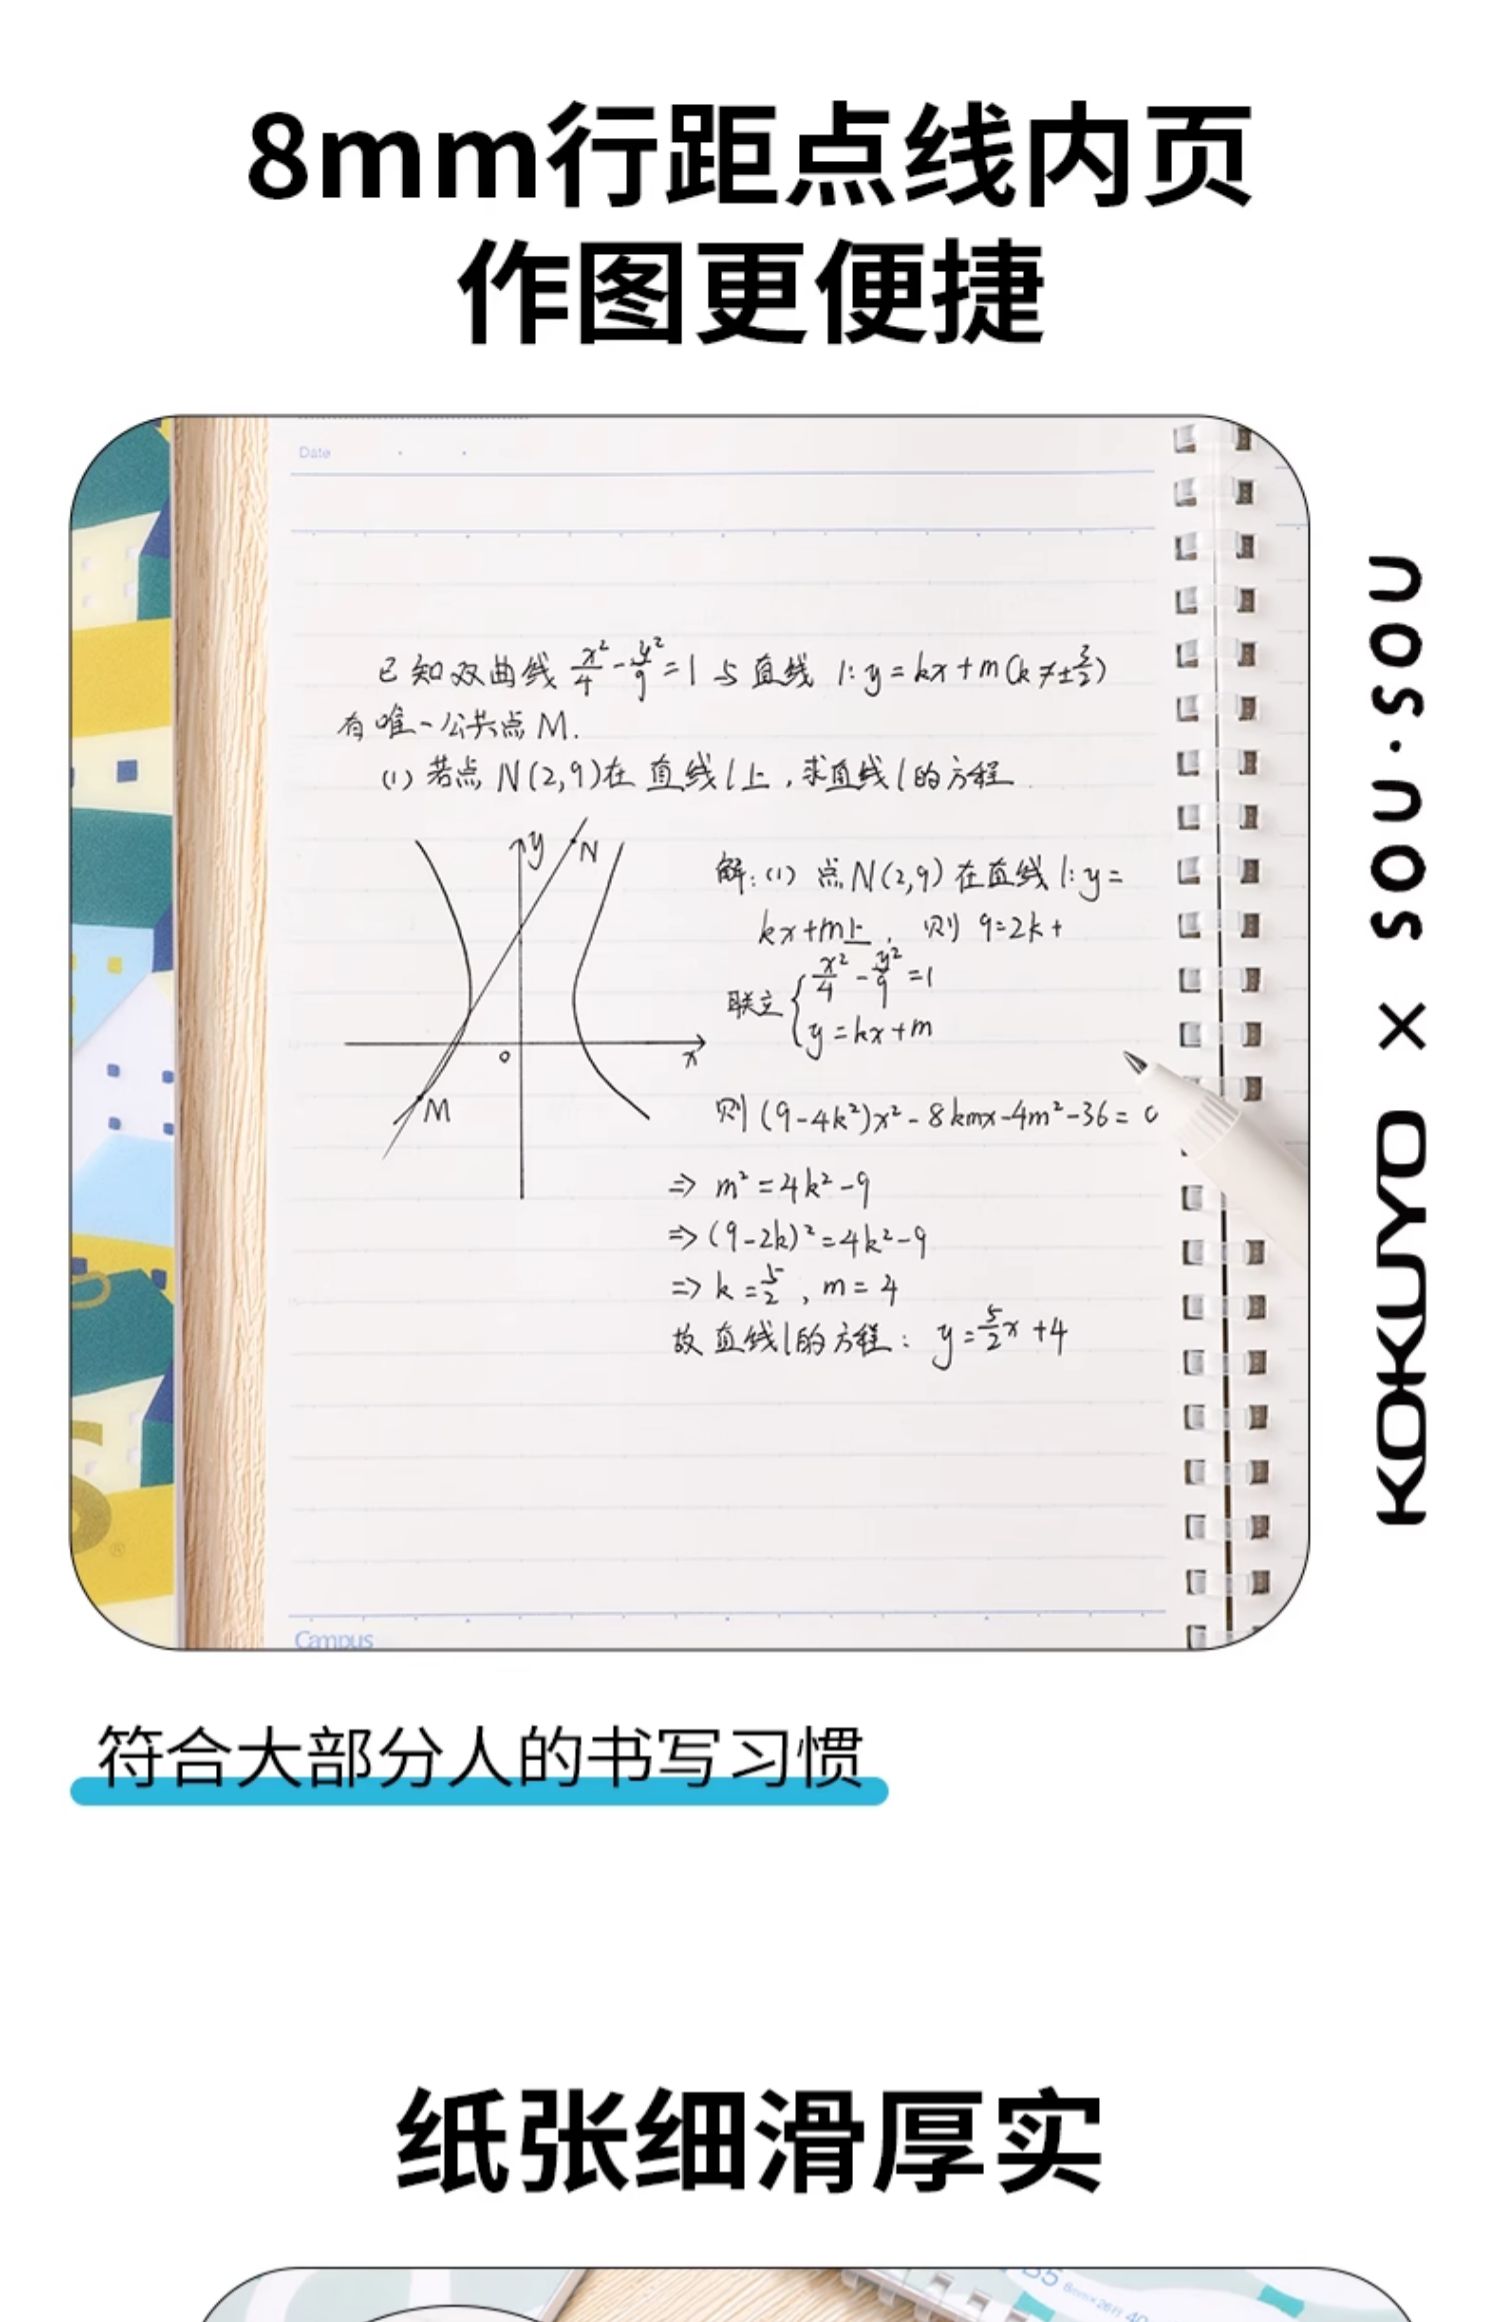 8mm行距点线内页
作图更便捷
Date
已知双曲线 x²/4 - y²/9 = 1 与直线 l: y = kx + m (k ≠ ± 3/2)
有唯一公共点 M.
(1) 若点 N(2,9)在直线l上,求直线l的方程.
y
N
O
x
M
解:(1) 点N(2,9)在直线 l: y =
kx+m上, 则 9=2k+
联立 { x²/4 - y²/9 = 1
y = kx+m
则 (9-4k²)x² - 8kmx - 4m² - 36 = 0
=> m² = 4k² - 9
=> (9-2k)² = 4k² - 9
=> k = 5/2 , m = 4
故直线l的方程: y = 5/2 x + 4
Campus
®
SOU·SOU
×
KOKUYO
符合大部分人的书写习惯
纸张细滑厚实
B5
8mm×26行 40